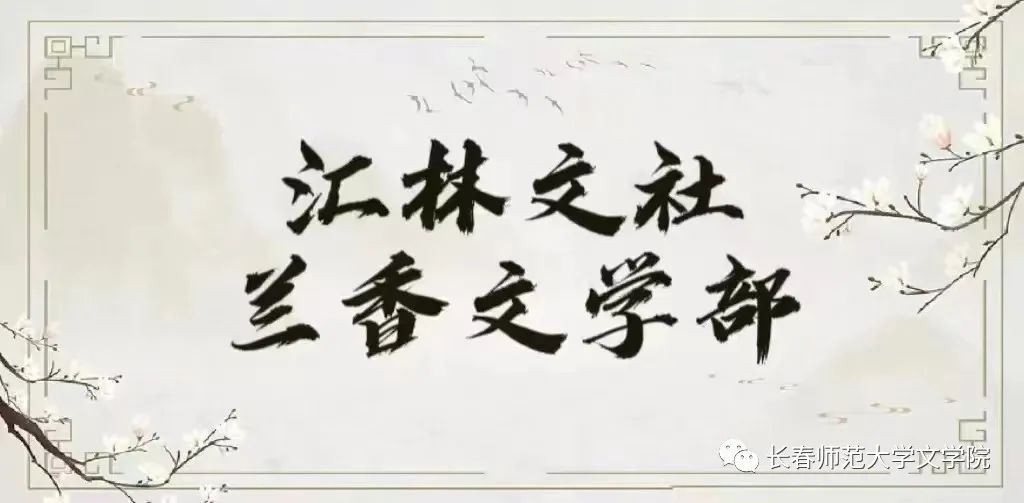 汇林文社
兰香文学部
长春师范大学文学院